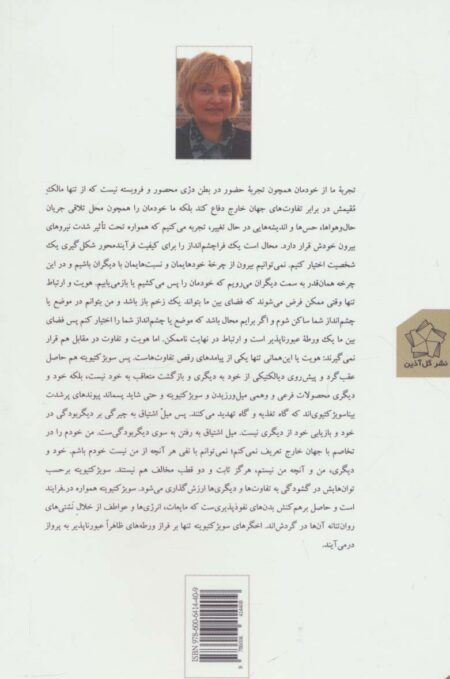 تجربهٔ ما از خودمان همچون تجربهٔ حضور در بطن دژی محصور و فروبسته نیست که از تنها مالک
مُقیمش در برابر تفاوت‌های جهان خارج دفاع کند بلکه ما خودمان را همچون محل تلاقی جریان
حال‌وهواها، حس‌ها و اندیشه‌هایی در حال تغییر، تجربه می‌کنیم که همواره تحت تأثیر شدت نیروهای
بیرون خودش قرار دارد. محال است یک فراچشم‌انداز را برای کیفیت فرآیندمحور شکل‌گیری یک
شخصیت اختیار کنیم. نمی‌توانیم بیرون از چرخهٔ خودهایمان و نسبت‌هایمان با دیگران باشیم و در این
چرخه همان‌قدر به سمت دیگران می‌رویم که خودمان را پس می‌کشیم یا بازمی‌یابیم. هویت و ارتباط
تنها وقتی ممکن فرض می‌شوند که فضای بین ما بتواند یک زخم باز باشد و من بتوانم در موضع یا
چشم‌انداز شما ساکن شوم و اگر برایم محال باشد که موضع یا چشم‌انداز شما را اختیار کنم پس فضای
بین ما یک ورطهٔ عبورناپذیر است و ارتباط در نهایت ناممکن. اما هویت و تفاوت در مقابل هم قرار
نمی‌گیرند: هویت یا این‌همانی تنها یکی از پیامدهای رقص تفاوت‌هاست. پس سوبژکتیویته هم حاصل
عقب‌گرد و پیش‌روی دیالکتیکی از خود به دیگری و بازگشت متعاقب به خود نیست، بلکه خود و
دیگری محصولات فرعی و وهمی میل‌ورزیدن و سوبژکتیویته و حتی شاید پسماند پیوندهای پرشدت
بیناسوبژکتیوی‌اند که گاه تغذیه و گاه تهدید می‌کنند. پس میل اشتیاق به چیرگی بر دیگربودگی در
خود و بازیابی خود از دیگری نیست. میل اشتیاق به رفتن به سوی دیگربودگی‌ست. من خودم را در
تخاصم با جهان خارج تعریف نمی‌کنم؛ نمی‌توانم با نفی هر آنچه از من نیست خودم باشم. خود و
دیگری، من و آنچه من نیستم، هرگز ثابت و دو قطب مخالف هم نیستند. سوبژکتیویته برحسب
توان‌هایش در گشودگی به تفاوت‌ها و دیگری‌ها ارزش‌گذاری می‌شود. سوبژکتیویته همواره درفرایند
است و حاصل برهم‌کنش بدن‌های نفوذپذیری‌ست که مایعات، انرژی‌ها و عواطف از خلال تَنشی‌های
روان‌تنانه آن‌ها در گردش‌اند. اخگرهای سوبژکتیویته تنها بر فراز ورطه‌های ظاهراً عبورناپذیر به پرواز
درمی‌آیند.
نشر گل‌آذین
ISBN 978-600-6414-40-9